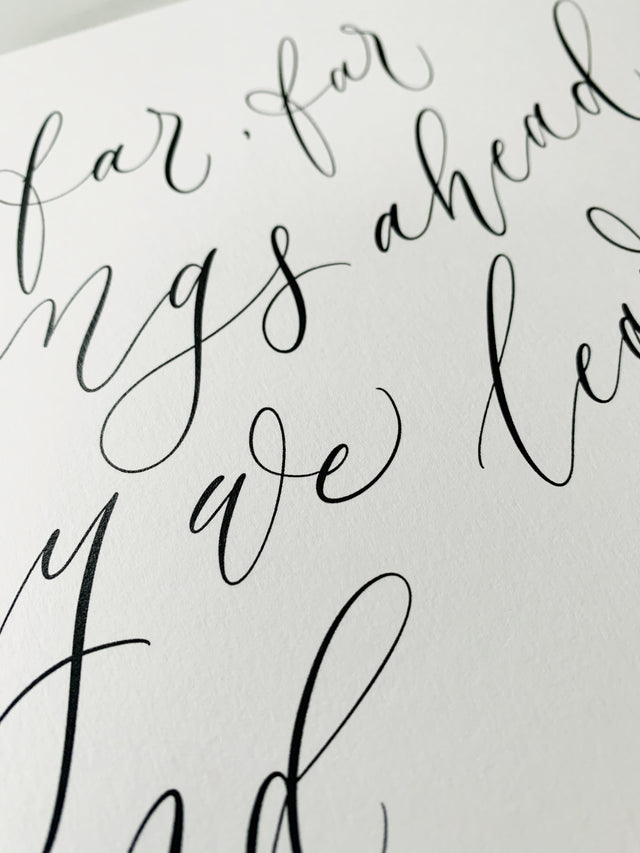 far, far
ngs ahead
y we lea
nd